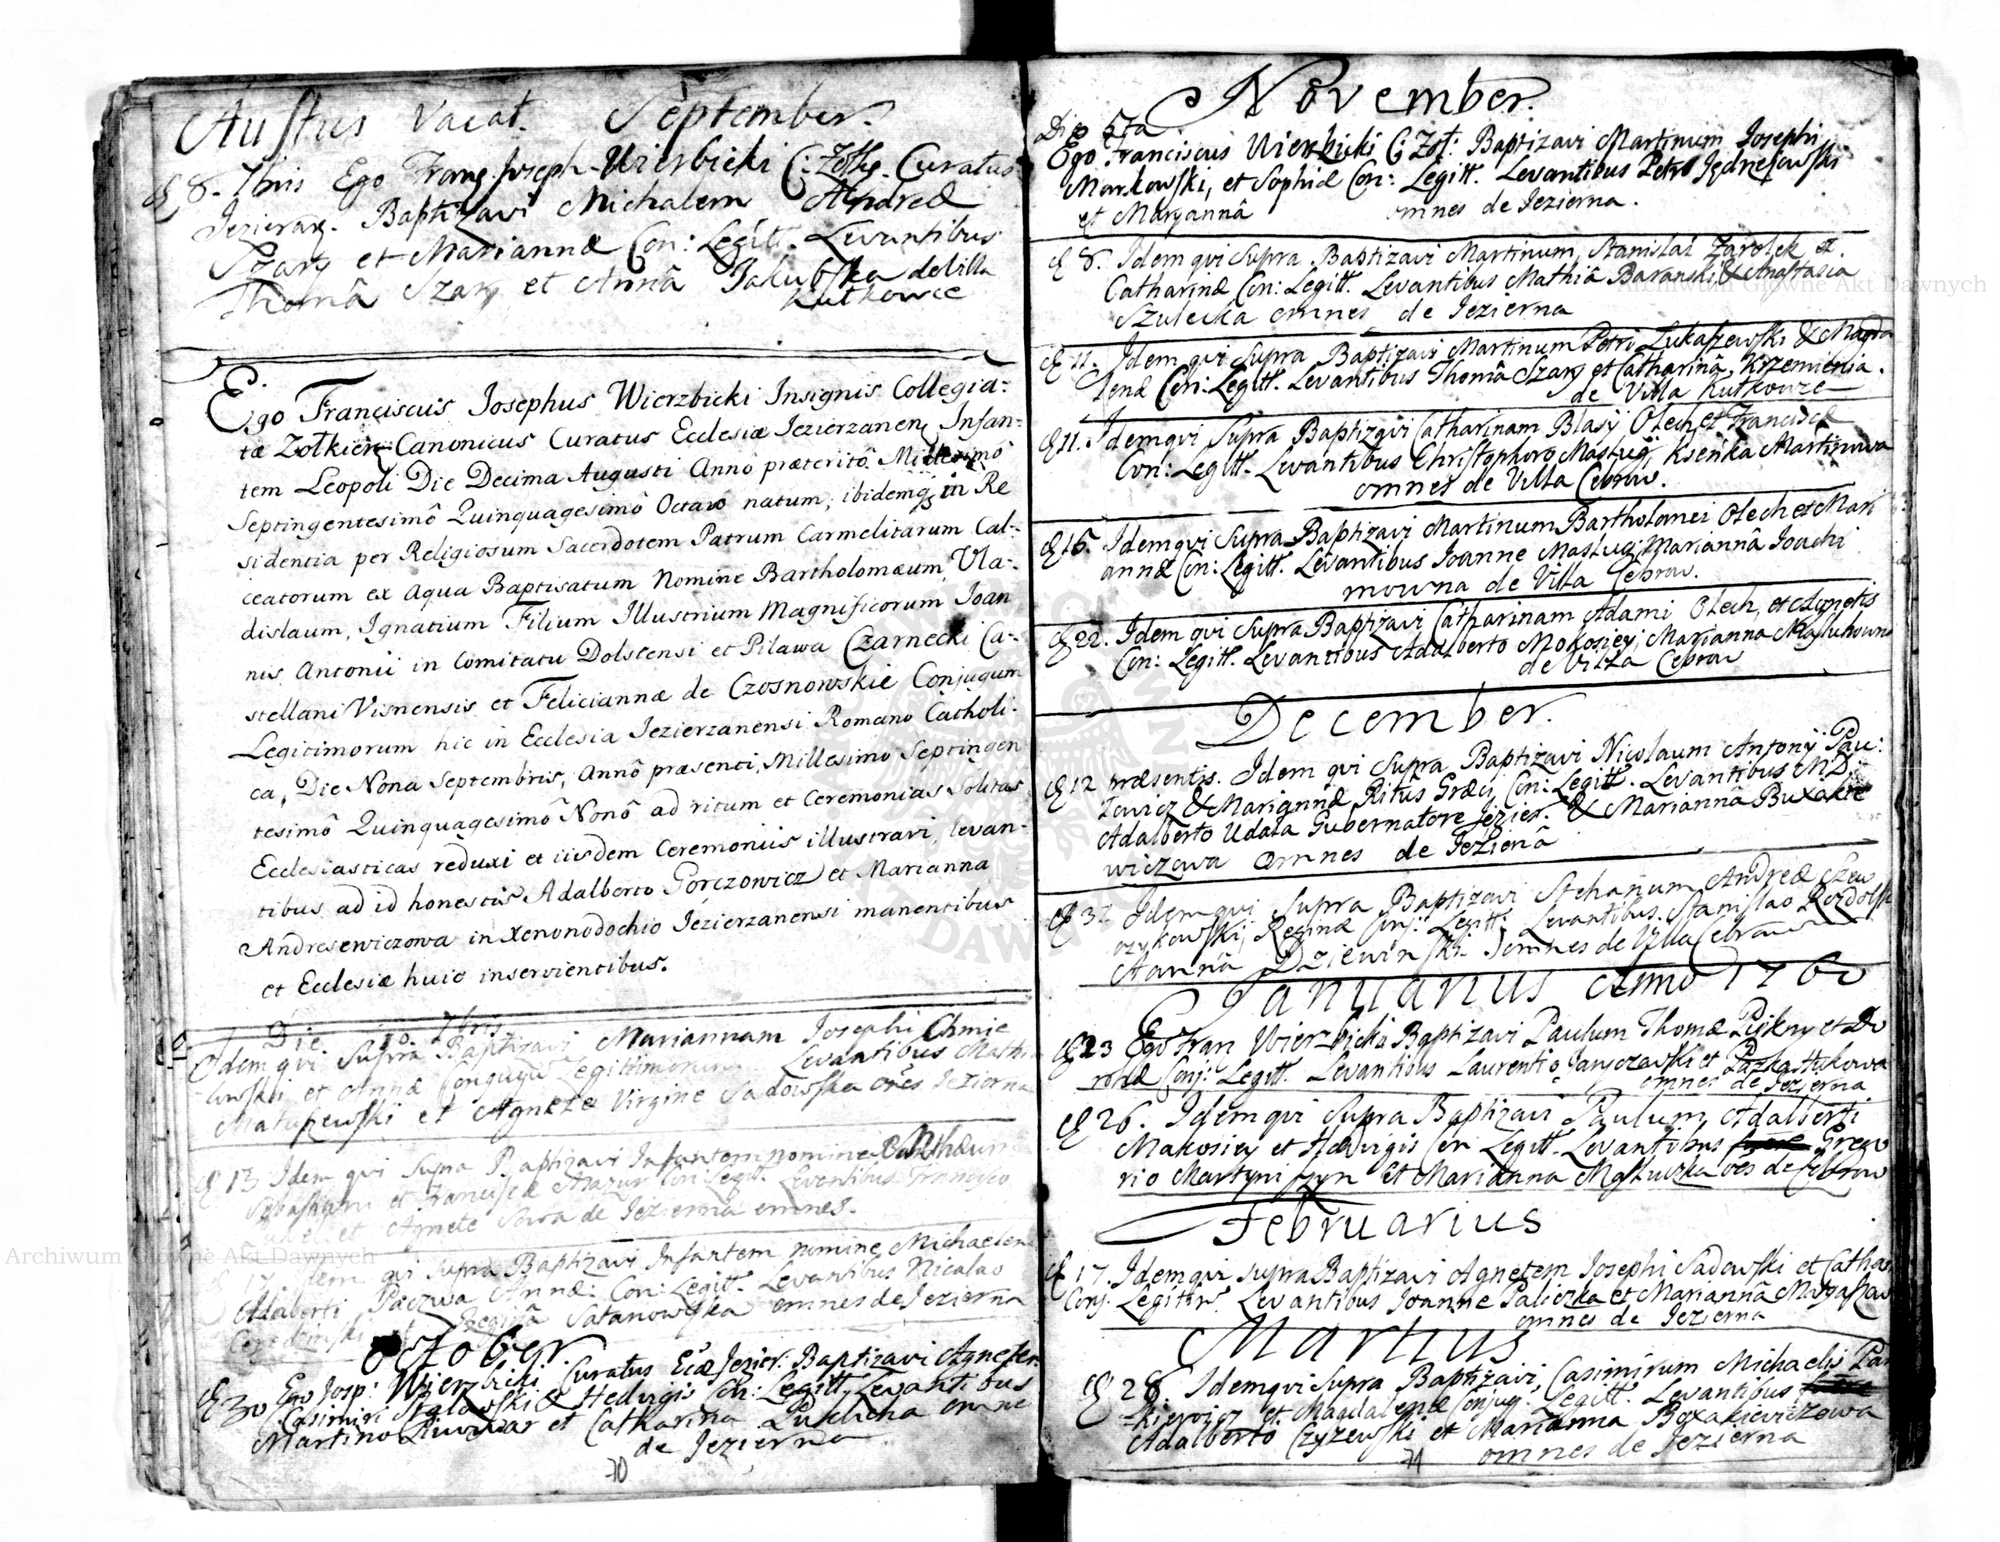 Austus Vacat. September.
8. 7bris Ego Franc. Joseph Wierbicki C: Zołkę. Curatus
Jezieran. Baptizavi Michalem Andreæ
Szary et Mariannæ Con: Legitt. Levantibus
Thomâ Szary et Annâ Jakubska de Villa
Kutkowce
Ego Franciscus Josephus Wierzbicki Insignis Collegia-
tæ Zolkien. Canonicus Curatus Ecclesiæ Jezierzanen. Infan-
tem Leopoli Die Decima Augusti Annô præteritô Millesimô
Septingentesimô Quinquagesimô Octavô natum, ibidemq; in Re
sidentia per Religiosum Sacerdotem Patrum Carmelitarum Cal-
ceatorum ex Aqua Baptisatum Nomine Bartholomæum, Vla-
dislaum, Ignatium Filium Illustrium Magnificorum Joan
nis Antonii in Comitatu Dolscensi et Pilawa Czarnecki Ca-
stellani Visnensis et Feliciannæ de Czosnowskie Conjugum
Legitimorum hic in Ecclesia Jezierzanensi Romano Catholi-
ca, Die Nona Septembris, Annô præsenti, Millesimo Septingen
tesimô Quinquagesimô Nonô ad ritum et Ceremonias Solitas
Ecclesiasticas reduxi et iisdem Ceremoniis illustravi, levan-
tibus ad id honestis Adalberto Gorczowicz et Marianna
Andresewiczowa in Xenonodochio Jezierzanensi manentibus
et Ecclesiæ huic inservientibus.
Die 10. 7bris
Idem qui Supra Baptizavi Mariannam Josephi Chmie
lewski et Annæ Conjugum Legittimorum Levantibus Mathia
Matuszewski et Agnete Virgine Sadowska oēs Jezierna
13 Idem qui Supra Baptizavi Infantem nomine Matthæum
Sebastiani et Franciscæ Mazur Con: Legitt. Levantibus Francisco
et Agnete Sowa de Jezierna omnes.
17. Idem qui Supra Baptizavi Infantem nomine Michaelem
Adalberti Paczwa Annæ: Con: Legitt. Levantibus Nicolao
et Reginâ Satanowska omnes de Jezierna
October.
30 Ego Josp: Wierzbicki Curatus Ecæ Jezier: Baptizavi Agnetem
Casimiri & Hedvigis Con: Legitt. Levantibus
Martino et Catharina Puklicha omne
de Jezierna
70
November.
Die 5ta
Ego Franciscus Wierzbicki C: Zoł: Baptizavi Martinum Josephi
Markowski, et Sophiæ Con: Legitt. Levantibus Petro Jędrejowski
et Maryannâ omnes de Jezierna.
8. Idem qui Supra Baptizavi Martinum, Stanislai Zarolek et
Catharinæ Con: Legitt. Levantibus Mathiâ Baranski & Anastasia
Szulecka omnes de Jezierna
11. Idem qui Supra Baptizavi Martinum Petri Lukaszewski & Magda
lenæ Con: Legitt. Levantibus Thomâ Szary et Catharinâ Krzemienia.
de Villa Kutkowze
11. Idem qui Supra Baptizavi Catharinam Blasÿ Olech et Franciscæ
Con: Legitt. Levantibus Christophoro Masluy, Kseńka Martinowa
omnes de Villa Cebrow.
15. Idem qui Supra Baptizavi Martinum Bartholomei Olech et Mari
annæ Con: Legitt. Levantibus Joanne Masluy, Mariannâ Joachi
mowna de Villa Cebrow.
22. Idem qui Supra Baptizavi Catharinam Adami Olech, et Agnetis
Con: Legitt. Levantibus Adalberto Mokosiey, Marianna Masluhowna
de Villa Cebrow
December.
12 præsentis. Idem qui Supra Baptizavi Nicolaum Antonÿ Pau:
lewicz & Mariannæ Ritus Græci, Con: Legitt. Levantibus M.D.
Adalberto Udala Gubernatore Jezier. & Mariannâ Buxakie
wiczowa omnes de Jezienâ
31 Idem qui Supra Baptizavi Stephanum Andreæ Szew
czykowski, Reginæ Conj: Legitt. Levantibus. Stanislao Rozdolsk
Annâ Dziewińska omnes de Villa Cebrow
Januarius Anno 1760
23 Ego Fran Wierzbicki Baptizavi Paulum Thomæ Piękny et Do
rothæ Conj: Legitt. Levantibus Laurentio Janczewski et Pazka Hukowa
omnes de Jezierna
26. Idem qui Supra Baptizavi Paulum, Adalberti
Makosiey et Hedvigis Con Legitt. Levantibus Grego
rio Martyniszyn et Marianna Masluszka oēs de Cebrow
Februarius
17. Idem qui supra Baptizavi Agnetem Josephi Sadowski et Cathar
Conj. Legittm. Levantibus Joanne Paliczka et Mariannâ
omnes de Jezierna
Martius
28. Idem qui Supra Baptizavi, Casimirum Michaelis Pan
kiewicz et Magdalenæ Conjug. Legitt. Levantibus
Adalberto Czyzewski et Marianna Boxakiewiczowa
omnes de Jezierna
71
Archiwum Główne Akt Dawnych
Archiwum Główne Akt Dawnych